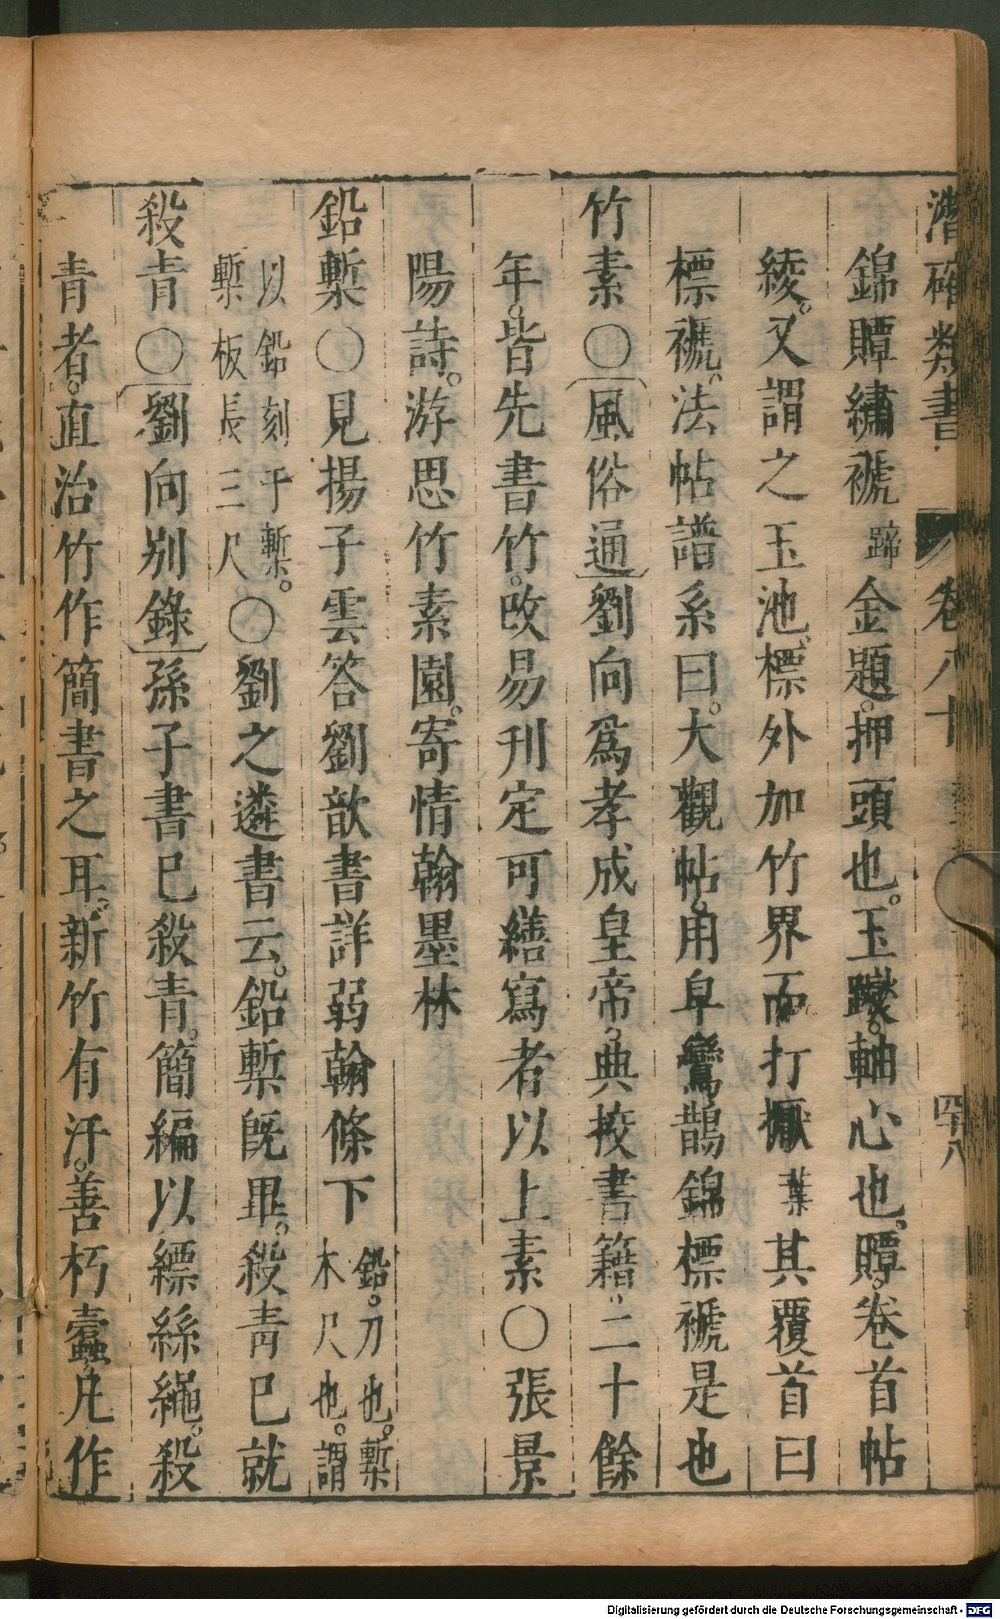 潛確類書 卷八十 四十八
錦贉繡褫蹄金題。押頭也。玉躞。軸心也。贉。卷首帖
綾。又謂之玉池。標外加竹界而打擫葉其覆首曰
標褫。法帖譜系曰。大觀帖。用皁鸞鵲錦標褫是也
竹素〇風俗通劉向爲孝成皇帝。典挍書籍。二十餘
年。皆先書竹。改易刊定可繕寫者以上素〇張景
陽詩。游思竹素園。寄情翰墨林
鉛槧〇見揚子雲答劉歆書詳弱翰條下鉛。刀也。槧木尺也。謂
以鉛刻于槧。槧板長三尺〇劉之遴書云。鉛槧旣畢。殺靑已就
殺青〇劉向別錄孫子書已殺青。簡編以縹絲繩。殺
青者。直治竹作簡書之耳。新竹有汗。善朽蠹。凡作
Digitalisierung gefördert durch die Deutsche Forschungsgemeinschaft - DFG